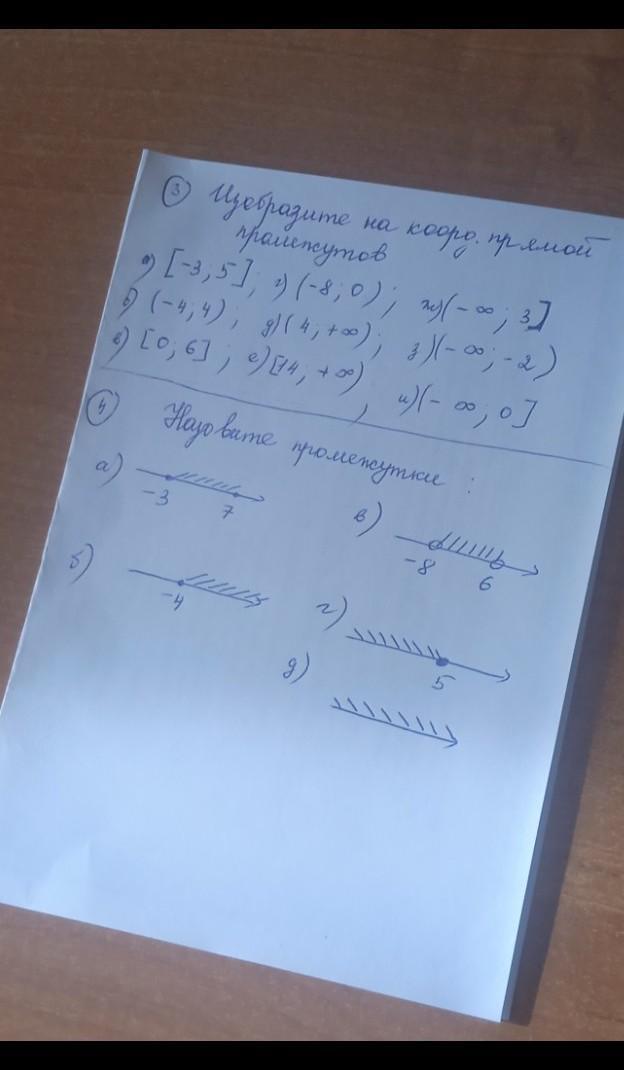 3 Изобразите на коорд. прямой
промежутов
а) [-3; 5]; г) (-8; 0); ж) (-∞; 3]
б) (-4; 4); д) (4; +∞); з) (-∞; -2)
в) [0; 6]; е) [14, +∞); и) (-∞; 0]
4 Назовите промежутки:
а) -3 7
в) -8 6
б) -4
г) 5
д)